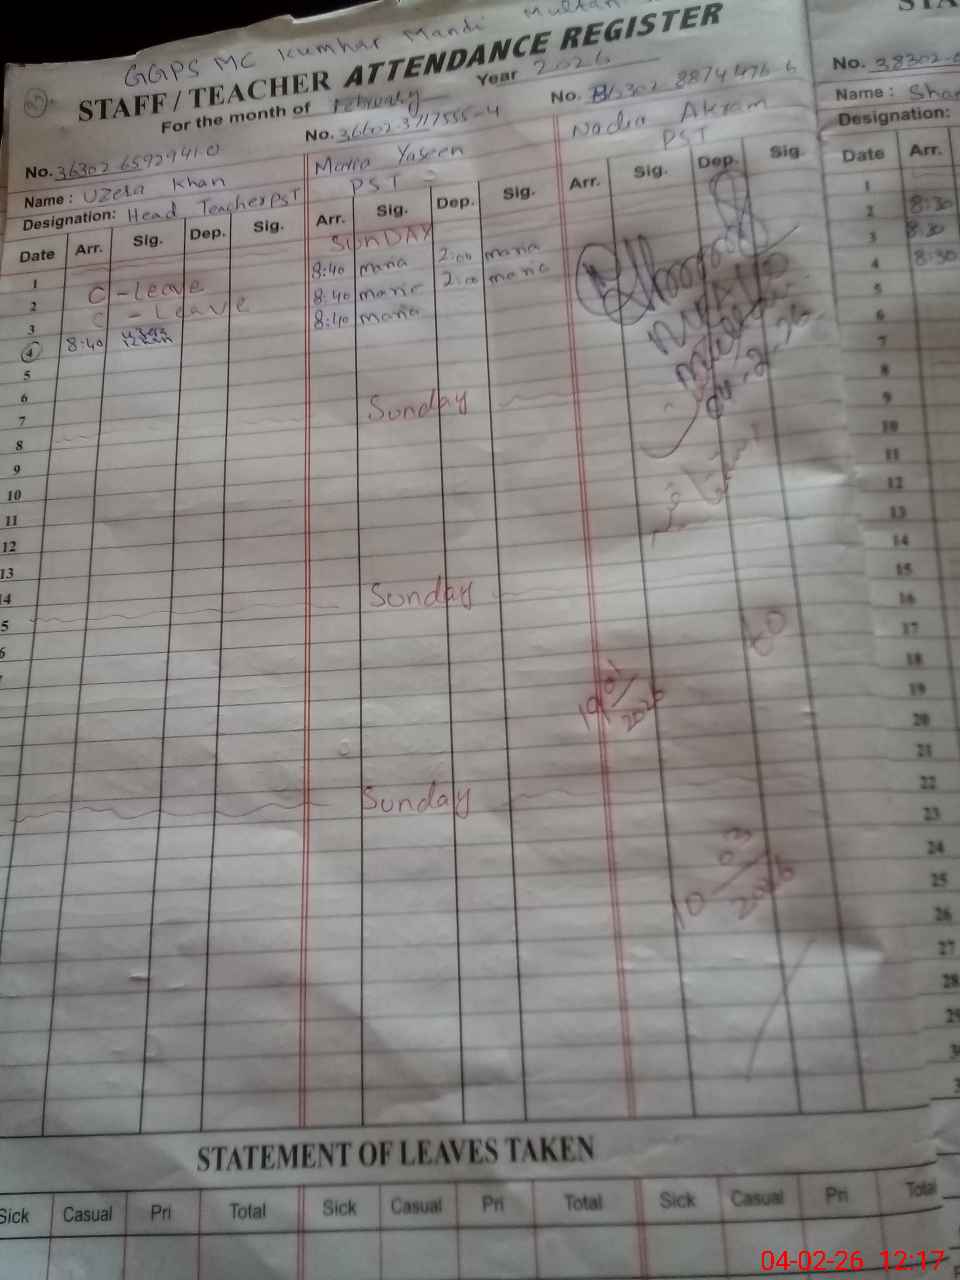 GGPS MC Kumhar Mandi Multan
STAFF / TEACHER ATTENDANCE REGISTER
For the month of February Year 2026
No. 36302 6592941 0 No. 36602-3717555-4 No. 36302 8874476 6 No. 38302-
Name : Uzera Khan Maria Yaseen Nadia Akram Name : Shar
Designation: Head Teacher PST PST PST Designation:
Date Arr. Sig. Dep. Sig. Arr. Sig. Dep. Sig. Arr. Sig. Dep. Sig. Date Arr.
1 SUNDAY 1
2 C - Leave 8:40 maria 2:00 maria 2 8:30
3 C - Leave 8:40 maria 2:00 maria 3 8:30
4 8:40 8:40 maria 4 8:30
5 5
6 6
7 Sunday 7
8 8
9 9
10 10
11 11
12 12
13 13
14 Sunday 14
5 15
6 16
17
18
19
20
21
Sunday 22
23
24
25
26
27
28
29
04-2-26
19/01/2026
10/03/2026
STATEMENT OF LEAVES TAKEN
Sick Casual Pri Total Sick Casual Pri Total Sick Casual Pri Total
04-02-26 12:17